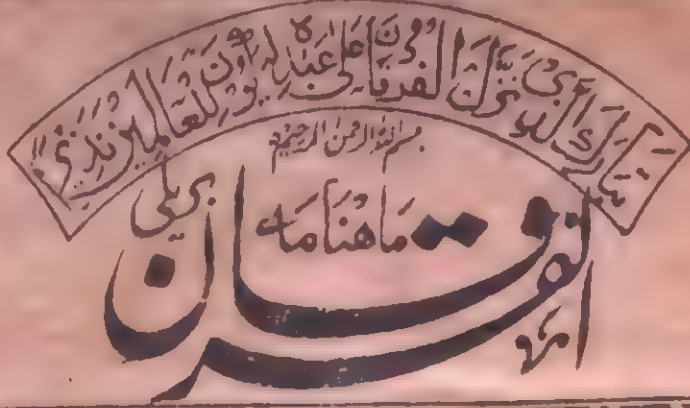 تبارك الذي نزل الفرقان على عبده ليكون للعالمين نذيرا
بسم الله الرحمن الرحيم
ماهنامه
الفرقان
بریلی